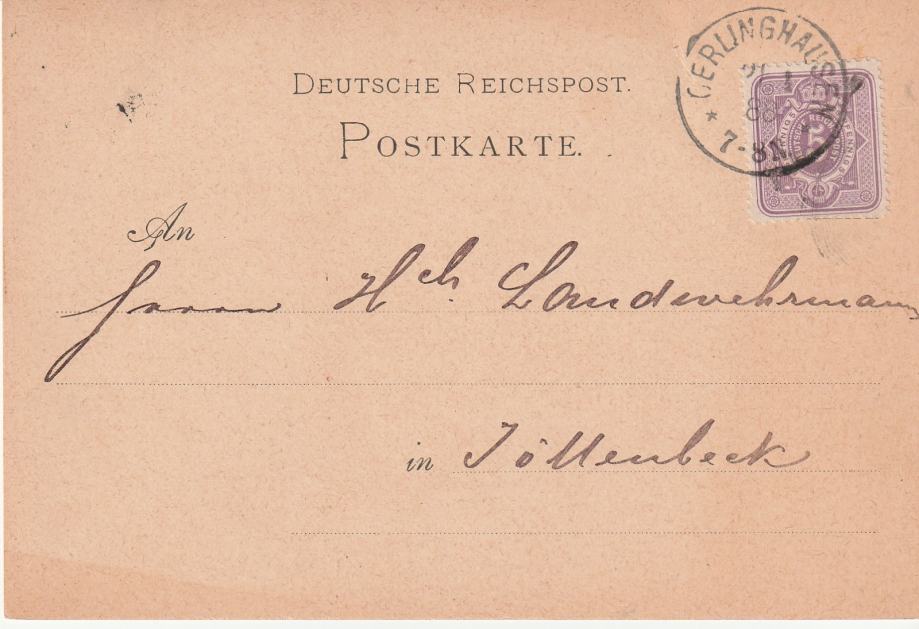 DEUTSCHE REICHSPOST.
POSTKARTE.
OERLINGHAUSEN
88
7-8N
An
Herrn Hch. Landwehrmann
in Jöllenbeck